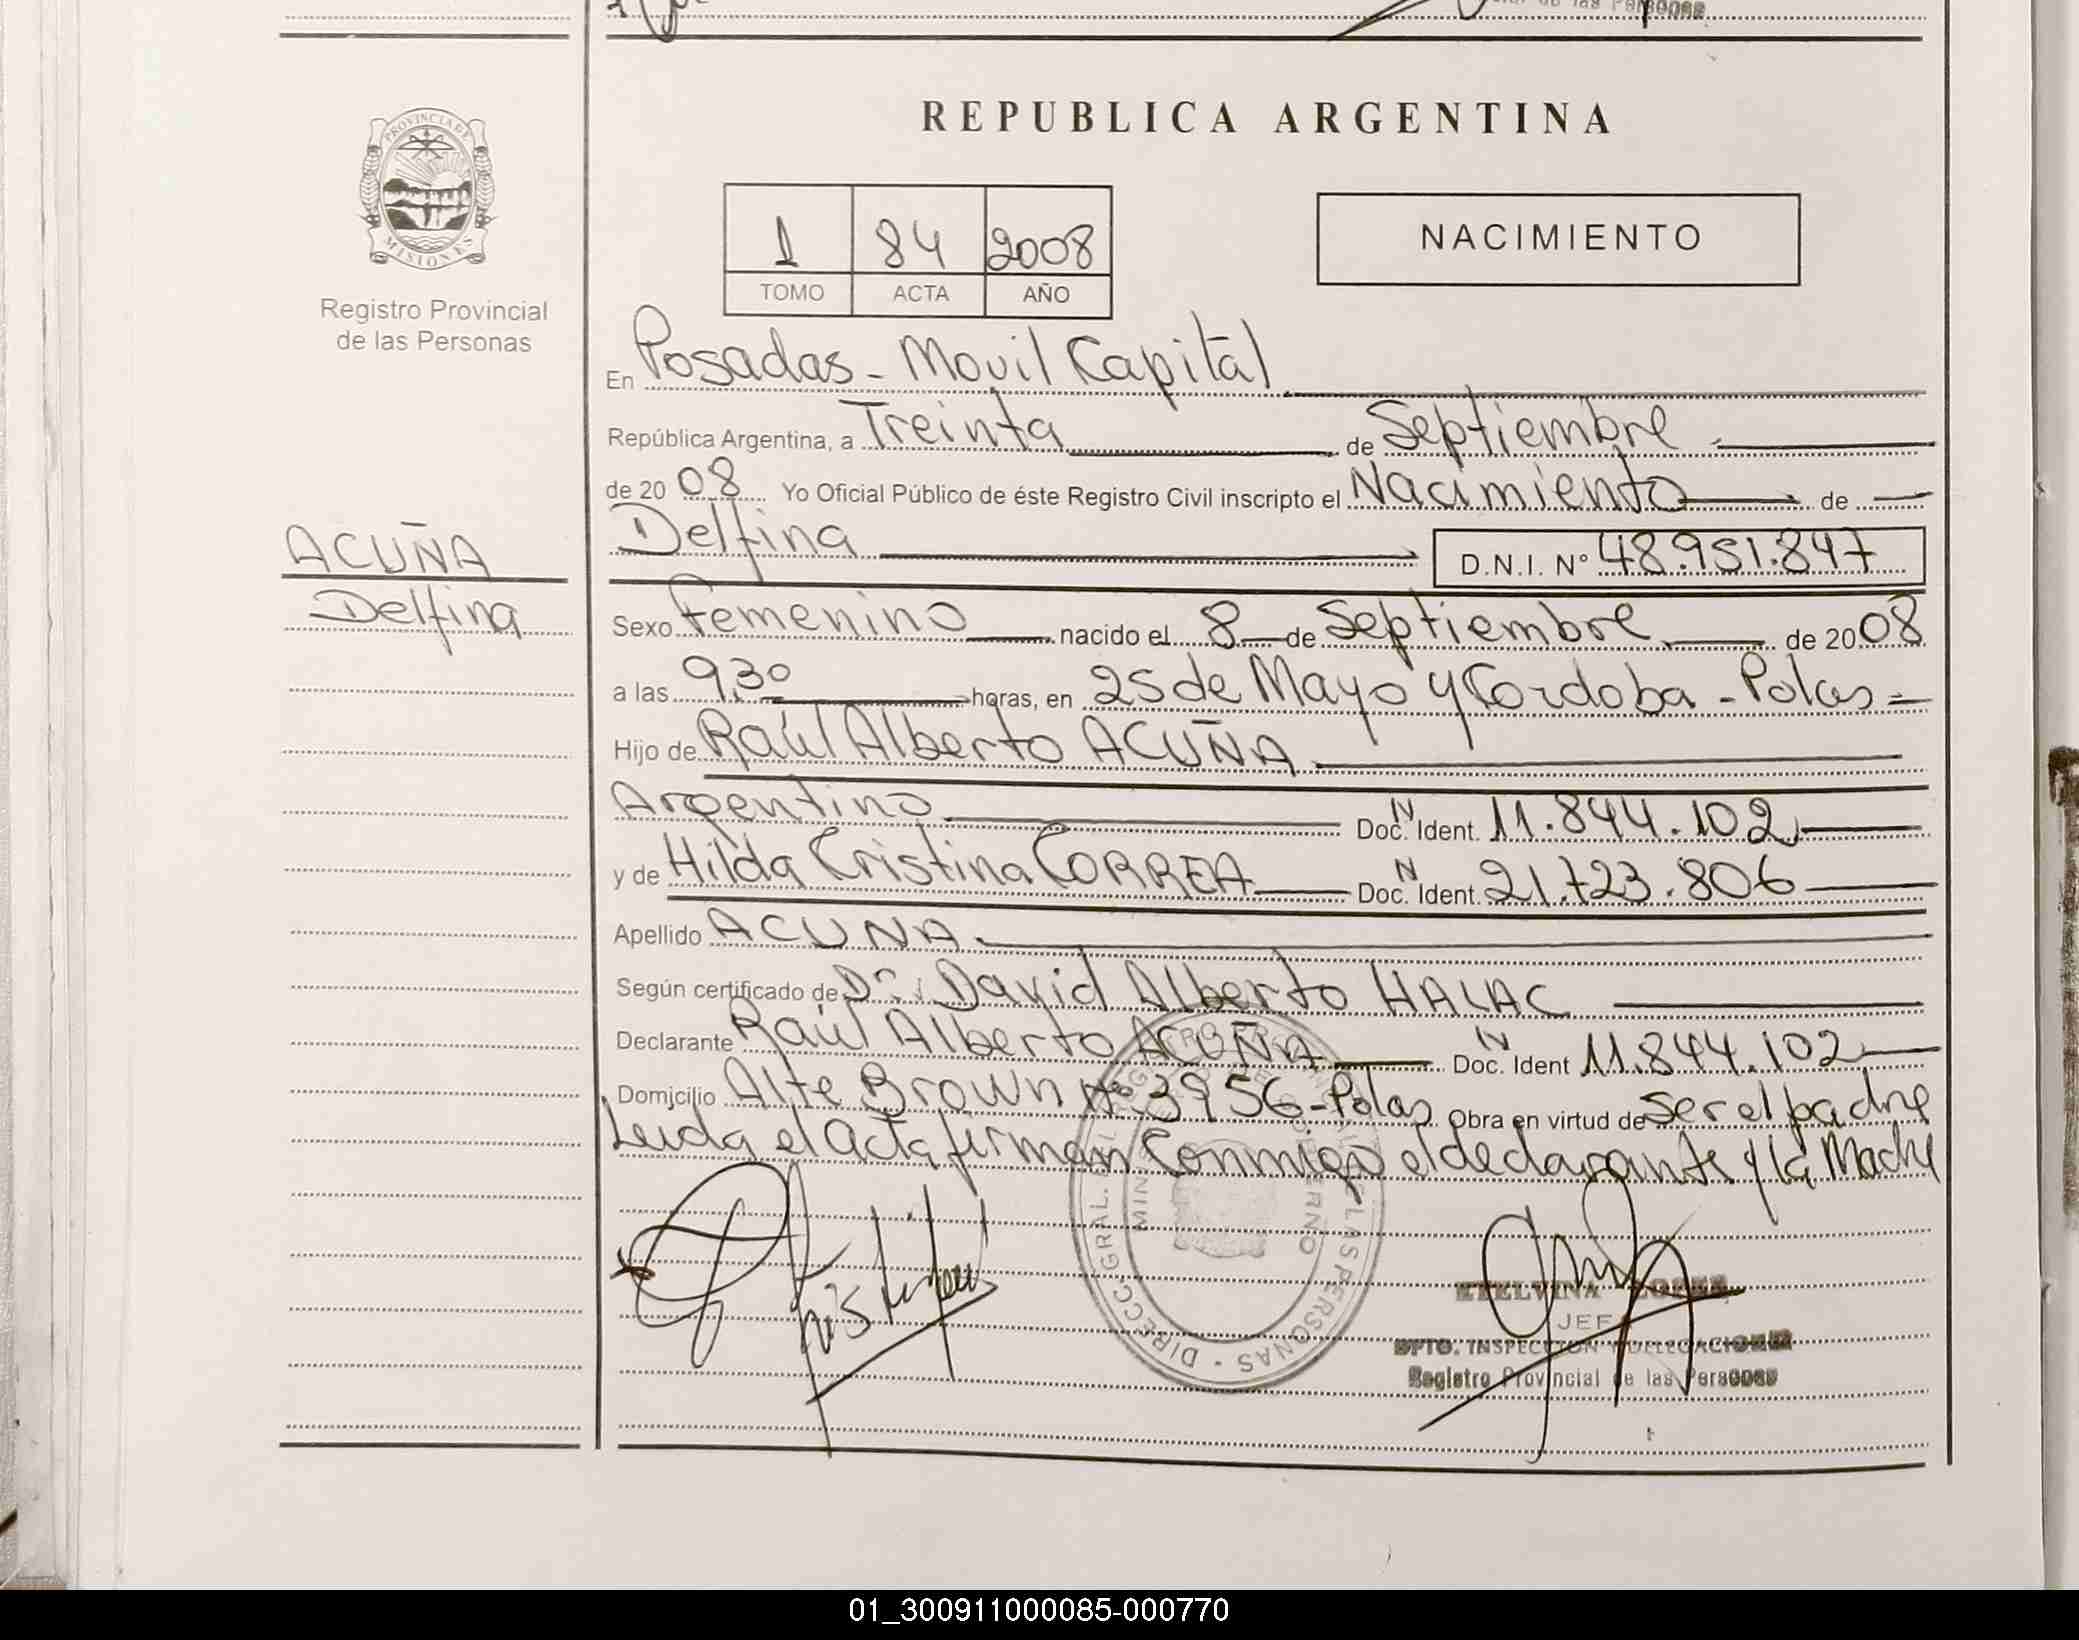 REPUBLICA ARGENTINA
PROVINCIA DE
MISIONES
Registro Provincial
de las Personas
1 84 2008
TOMO ACTA AÑO
NACIMIENTO
En Posadas - Movil Capital
República Argentina, a Treinta de Septiembre
de 2008 Yo Oficial Público de éste Registro Civil inscripto el Nacimiento de
ACUÑA
Delfina
Delfina D.N.I. Nº 48.951.847
Sexo Femenino nacido el 8 de Septiembre de 2008
a las 9,30 horas, en 25 de Mayo y Cordoba - Pdas
Hijo de Raúl Alberto ACUÑA
Argentino Doc. N Ident. 11.844.102
y de Hilda Cristina CORREA Doc. N Ident. 21.723.806
Apellido ACUNA
Según certificado de Dr. David Alberto HALAC
Declarante Raúl Alberto ACUÑA Doc. N Ident 11.844.102
Domicilio Alte Brown Nº 3956 - Pdas Obra en virtud de ser el padre
Leida el acta firman conmigo el declarante y la Madre
DIRECC. GRAL. DEL REGISTRO PROVINCIAL DE LAS PERSONAS
ETELVINA
JEFA
DPTO. INSPECCION Y DELEGACIONES
Registro Provincial de las Personas
01_300911000085-000770